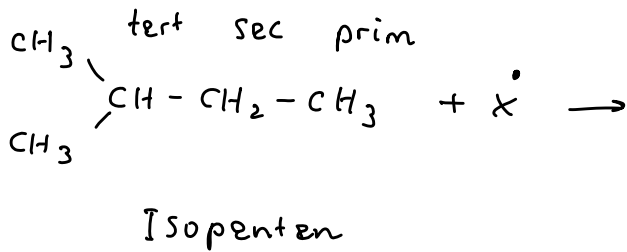 tert sec prim
CH3
CH - CH2 - CH3 + x• →
CH3
Isopentan